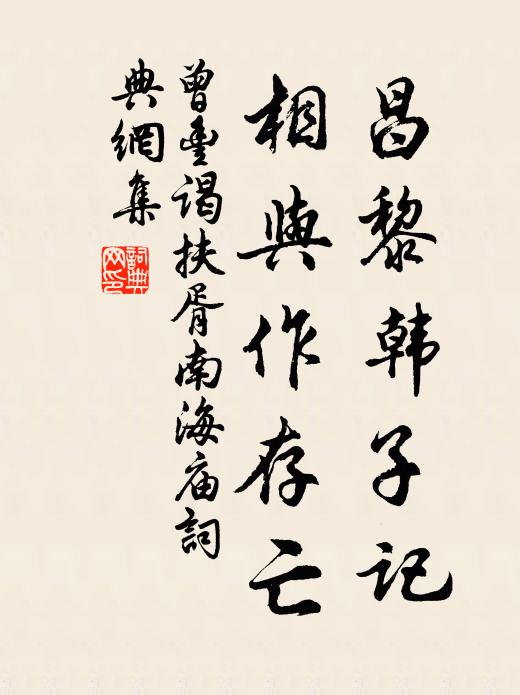 昌黎韩子记
相與作存亡
曾豊谒扶胥南海庙詞
典網集
詞典
网印